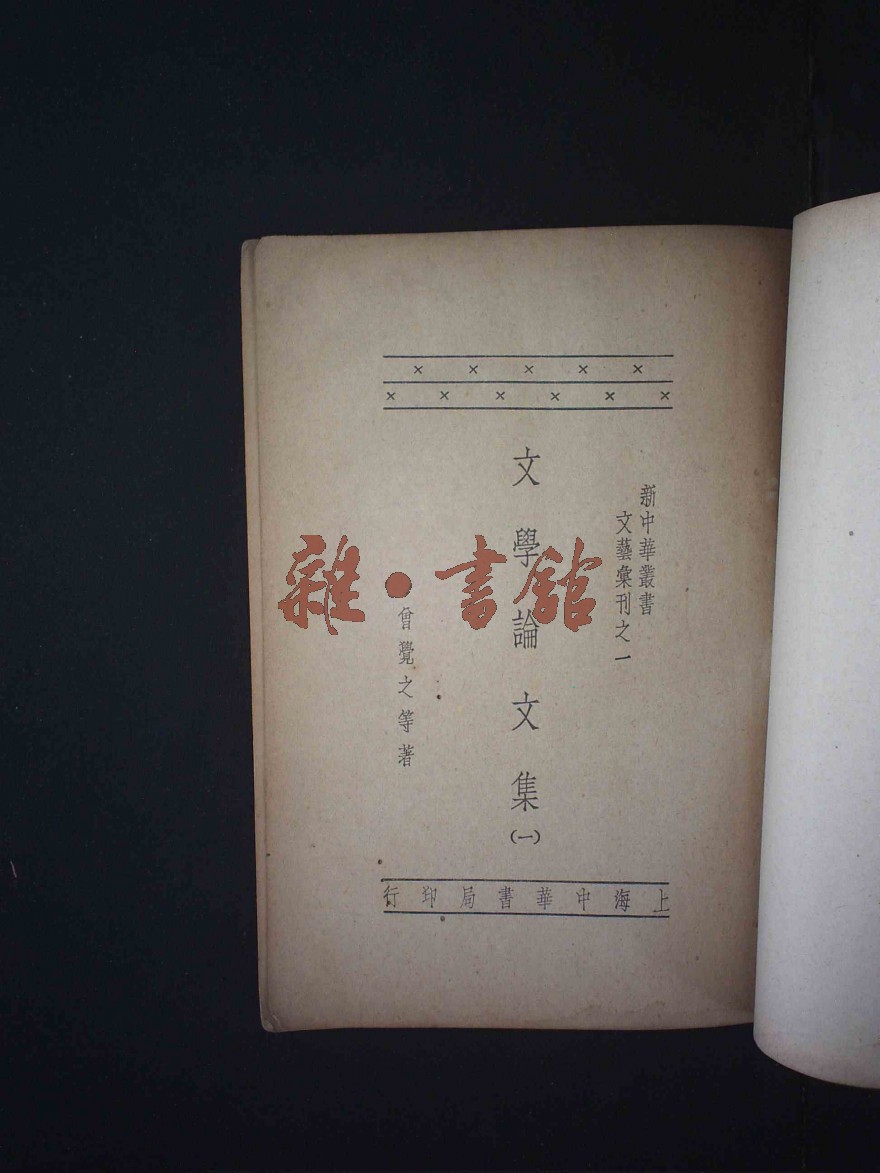 新中華叢書
文藝彙刊之一
文學論文集
(一)
曾覺之等著
上海中華書局印行
雜·書館